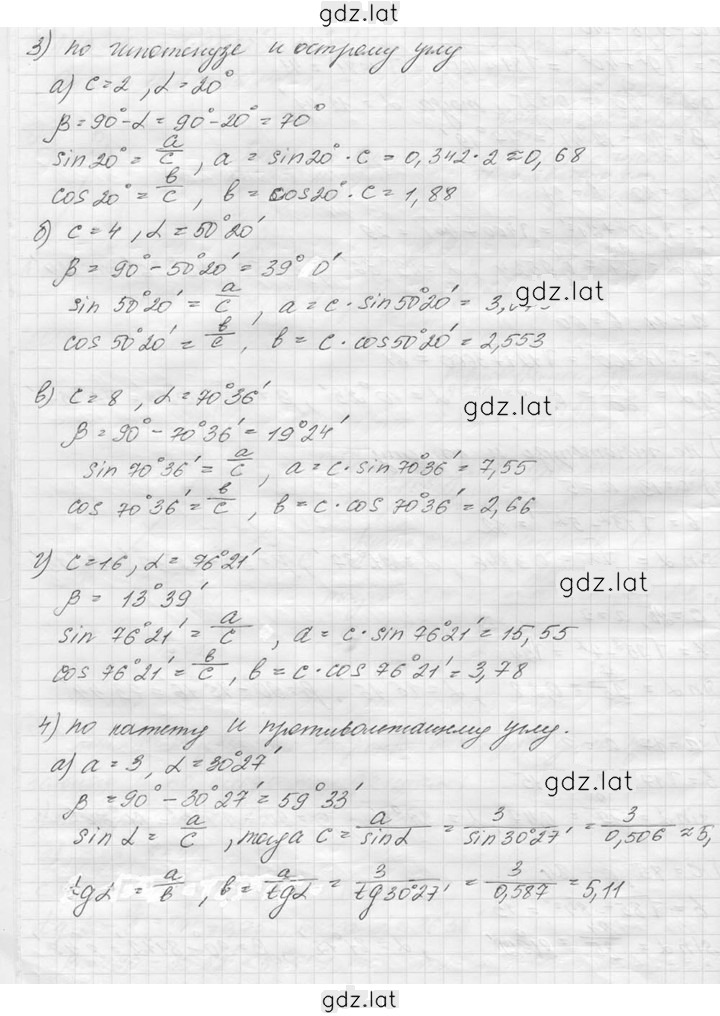 gdz.lat
3) по гипотенузе и острому углу
а) c=2, α=20°
β=90°-α=90°-20°=70°
sin20°=a/c, a=sin20°·c=0,342·2≈0,68
cos20°=в/c, в=cos20°·c=1,88
б) c=4, α=50°20′
β=90°-50°20′=39° 0′
sin 50°20′=a/c, a=c·sin50°20′=3,
gdz.lat
cos 50°20′=в/c, в=c·cos50°20′=2,553
в) c=8, α=70°36′
gdz.lat
β=90°-70°36′=19°24′
sin 70°36′=a/c, a=c·sin70°36′=7,55
cos 70°36′=в/c, в=c·cos 70°36′=2,66
г) c=16, α=76°21′
gdz.lat
β=13°39′
sin 76°21′=a/c, a=c·sin 76°21′=15,55
cos 76°21′=в/c, в=c·cos 76°21′=3,78
4) по катету и противолежащему углу.
а) a=3, α=30°27′
gdz.lat
β=90°-30°27′=59°33′
sin α=a/c, тогда c=a/sinα=3/sin30°27′=3/0,506≈5,
tgα=a/в, в=a/tgα=3/tg30°27′=3/0,587=5,11
gdz.lat